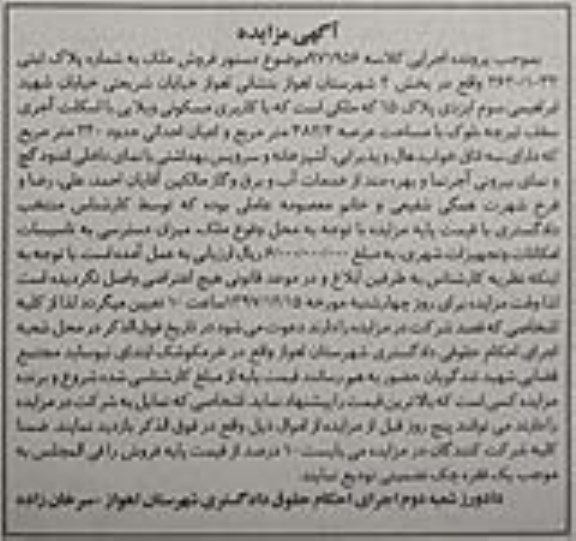 آگهی مزایده
بموجب پرونده اجرایی کلاسه ۹۷/۹۵۶ موضوع دستور فروش ملک به شماره پلاک ثبتی
واقع در بخش ۲ شهرستان اهواز بنشانی اهواز خیابان شریعتی خیابان شهید
ابراهیمی سوم ایزدی پلاک ۱۵ که ملکی است که با کاربری مسکونی ویلایی با اسکلت آجری
سقف تیرچه بلوک با مساحت عرصه متر مربع و اعیان احداثی حدود متر مربع
که دارای سه اتاق خواب، هال و پذیرایی، آشپزخانه و سرویس بهداشتی با نمای داخلی اندود گچ
و نمای بیرونی آجرنما و بهره مند از خدمات آب و برق و گاز مالکین آقایان احمد، علی، رضا و
فرج شهرت همگی شفیعی و خانم معصومه عاملی بوده که توسط کارشناس منتخب
دادگستری با قیمت پایه مزایده با توجه به محل وقوع ملک، میزان دسترسی به تاسیسات
امکانات و تجهیزات شهری، به مبلغ ریال ارزیابی به عمل آمده است. با توجه به
اینکه نظریه کارشناس به طرفین ابلاغ و در موعد قانونی هیچ اعتراضی واصل نگردیده است
لذا وقت مزایده برای روز چهارشنبه مورخه ساعت ۱۰ تعیین میگردد لذا از کلیه
اشخاصی که قصد شرکت در مزایده را دارند دعوت می شود در تاریخ فوق الذکر در محل شعبه
اجرای احکام حقوقی دادگستری شهرستان اهواز واقع در خرمکوشک ابتدای نیوساید مجتمع
قضایی شهید تندگویان حضور به هم رسانند. قیمت پایه از مبلغ کارشناسی شده شروع و برنده
مزایده کسی است که بالاترین قیمت را پیشنهاد نماید. اشخاصی که تمایل به شرکت در مزایده
را دارند می توانند پنج روز قبل از مزایده از اموال ذیل واقع در فوق الذکر بازدید نمایند. ضمنا
کلیه شرکت کنندگان در مزایده می بایست ۱۰ درصد از قیمت پایه فروش را فی المجلس به
موجب یک فقره چک تضمینی تودیع نمایند.
دادورز شعبه دوم اجرای احکام حقوقی دادگستری شهرستان اهواز - سرخان زاده